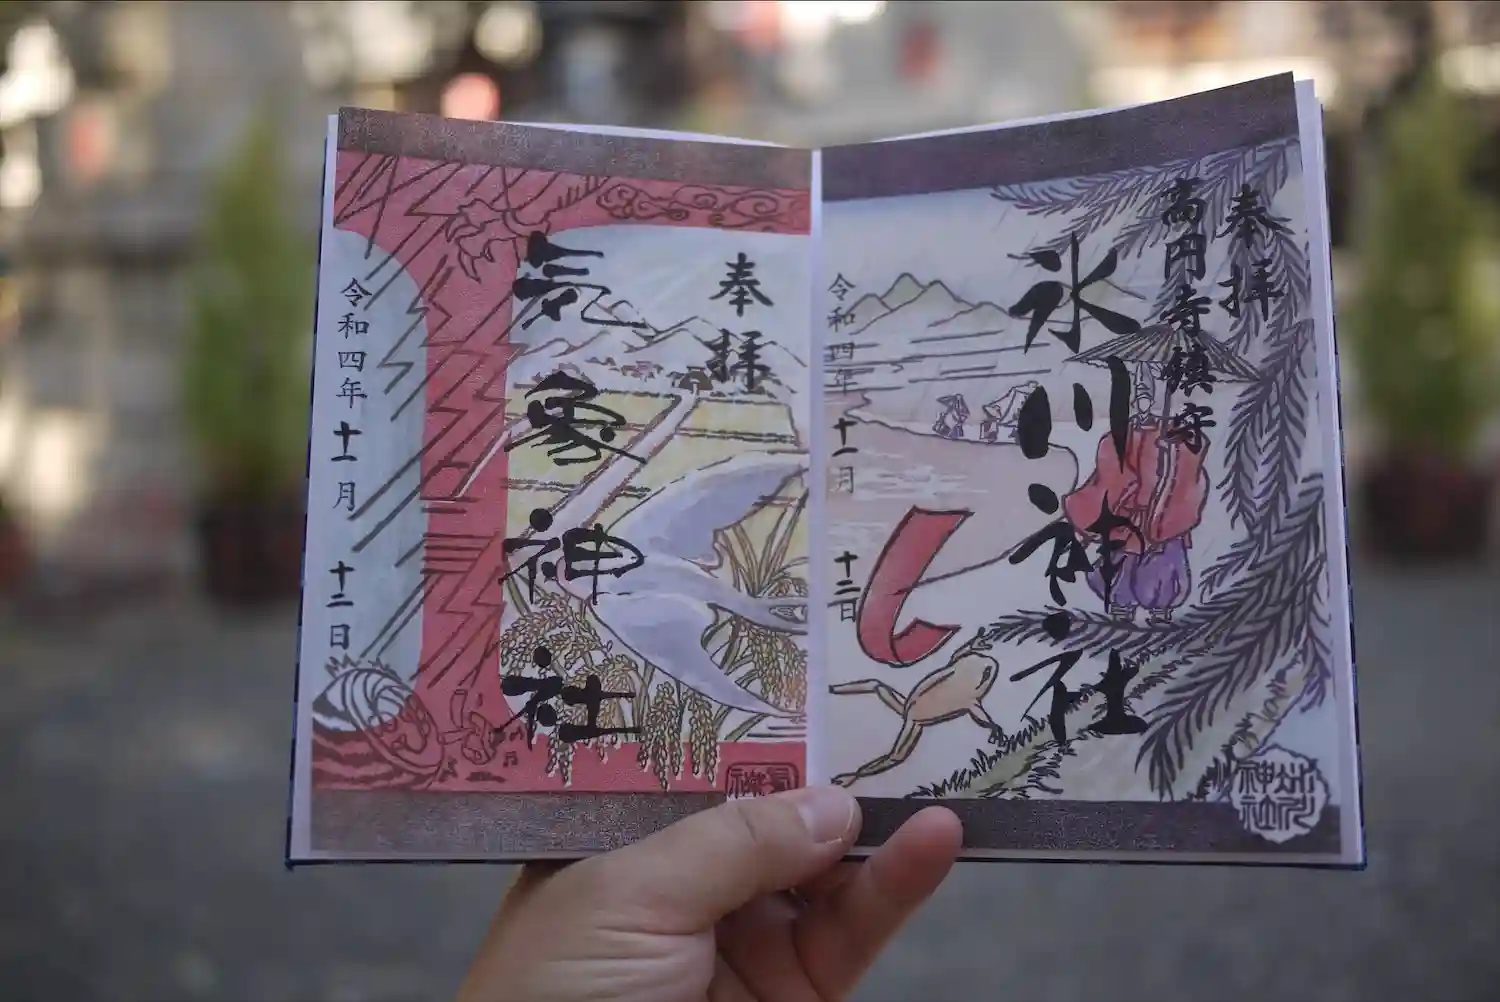 奉拝
高円寺鎮守
氷川神社
令和四年十一月十二日
氷川
神社
奉拝
気象神社
令和四年十一月十二日